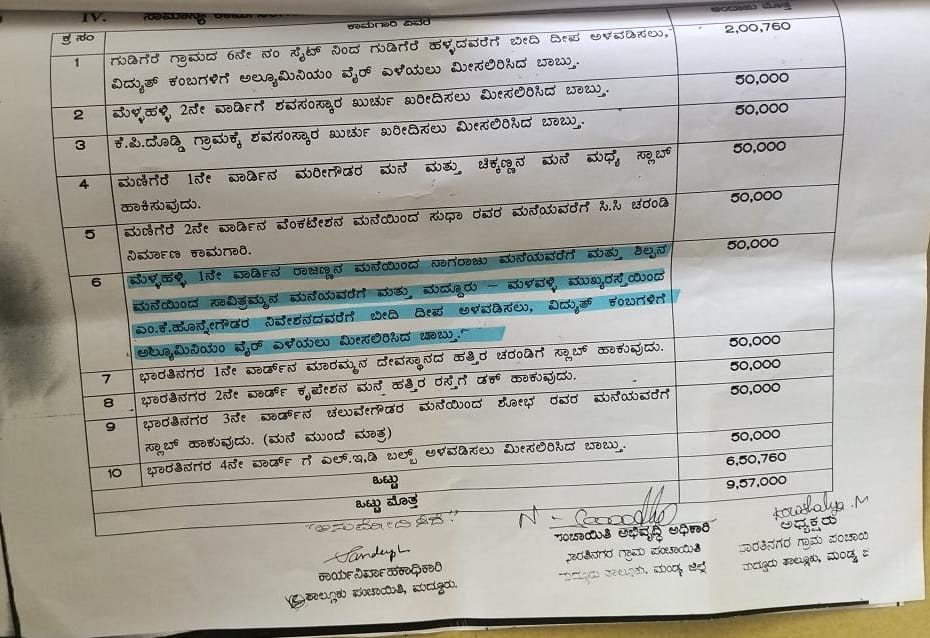 IV. ಸಾಮಾನ್ಯ
ಕ್ರ ಸಂ ಕಾಮಗಾರಿ ವಿವರ ಅಂದಾಜು ಮೊತ್ತ
1 ಗುಡಿಗೆರೆ ಗ್ರಾಮದ 6ನೇ ನಂ ಸೈಟ್ ನಿಂದ ಗುಡಿಗೆರೆ ಹಳ್ಳದವರೆಗೆ ಬೀದಿ ದೀಪ ಅಳವಡಿಸಲು, 2,00,760
ವಿದ್ಯುತ್ ಕಂಬಗಳಿಗೆ ಅಲ್ಯೂಮಿನಿಯಂ ವೈರ್ ಎಳೆಯಲು ಮೀಸಲಿರಿಸಿದ ಬಾಬ್ತು.
2 ಮೆಳ್ಳಹಳ್ಳಿ 2ನೇ ವಾರ್ಡಿಗೆ ಶವಸಂಸ್ಕಾರ ಖುರ್ಚು ಖರೀದಿಸಲು ಮೀಸಲಿರಿಸಿದ ಬಾಬ್ತು. 50,000
3 ಕೆ.ಪಿ.ದೊಡ್ಡಿ ಗ್ರಾಮಕ್ಕೆ ಶವಸಂಸ್ಕಾರ ಖುರ್ಚು ಖರೀದಿಸಲು ಮೀಸಲಿರಿಸಿದ ಬಾಬ್ತು. 50,000
4 ಮಣಿಗೆರೆ 1ನೇ ವಾರ್ಡಿನ ಮರೀಗೌಡರ ಮನೆ ಮತ್ತು ಚಿಕ್ಕಣ್ಣನ ಮನೆ ಮಧ್ಯೆ ಸ್ಲಾಬ್ 50,000
ಹಾಕಿಸುವುದು.
5 ಮಣಿಗೆರೆ 2ನೇ ವಾರ್ಡಿನ ವೆಂಕಟೇಶನ ಮನೆಯಿಂದ ಸುಧಾ ರವರ ಮನೆಯವರೆಗೆ ಸಿ.ಸಿ ಚರಂಡಿ 50,000
ನಿರ್ಮಾಣ ಕಾಮಗಾರಿ.
6 ಮೆಳ್ಳಹಳ್ಳಿ 1ನೇ ವಾರ್ಡಿನ ರಾಜಣ್ಣನ ಮನೆಯಿಂದ ನಾಗರಾಜು ಮನೆಯವರೆಗೆ ಮತ್ತು ಶಿಲ್ಪನ 50,000
ಮನೆಯಿಂದ ಸಾವಿತ್ರಮ್ಮನ ಮನೆಯವರೆಗೆ ಮತ್ತು ಮದ್ದೂರು – ಮಳವಳ್ಳಿ ಮುಖ್ಯರಸ್ತೆಯಿಂದ
ಎಂ.ಕೆ.ಹೊನ್ನೇಗೌಡರ ನಿವೇಶನದವರೆಗೆ ಬೀದಿ ದೀಪ ಅಳವಡಿಸಲು, ವಿದ್ಯುತ್ ಕಂಬಗಳಿಗೆ
ಅಲ್ಯೂಮಿನಿಯಂ ವೈರ್ ಎಳೆಯಲು ಮೀಸಲಿರಿಸಿದ ಬಾಬ್ತು.
7 ಭಾರತಿನಗರ 1ನೇ ವಾರ್ಡ್‌ನ ಮಾರಮ್ಮನ ದೇವಸ್ಥಾನದ ಹತ್ತಿರ ಚರಂಡಿಗೆ ಸ್ಲಾಬ್ ಹಾಕುವುದು. 50,000
8 ಭಾರತಿನಗರ 2ನೇ ವಾರ್ಡ್ ಕೃಪೇಶನ ಮನೆ ಹತ್ತಿರ ರಸ್ತೆಗೆ ಡಕ್ ಹಾಕುವುದು. 50,000
9 ಭಾರತಿನಗರ 3ನೇ ವಾರ್ಡ್‌ನ ಚಲುವೇಗೌಡರ ಮನೆಯಿಂದ ಶೋಭ ರವರ ಮನೆಯವರೆಗೆ 50,000
ಸ್ಲಾಬ್ ಹಾಕುವುದು. (ಮನೆ ಮುಂದೆ ಮಾತ್ರ)
10 ಭಾರತಿನಗರ 4ನೇ ವಾರ್ಡ್ ಗೆ ಎಲ್.ಇ.ಡಿ ಬಲ್ಬ್ ಅಳವಡಿಸಲು ಮೀಸಲಿರಿಸಿದ ಬಾಬ್ತು. 50,000
ಒಟ್ಟು 6,50,760
ಒಟ್ಟು ಮೊತ್ತ 9,57,000
"ಅನುಮೋದಿಸಿದೆ"
Sandeep
ಕಾರ್ಯನಿರ್ವಾಹಕಾಧಿಕಾರಿ
ತಾಲ್ಲೂಕು ಪಂಚಾಯಿತಿ, ಮದ್ದೂರು.
ಪಂಚಾಯಿತಿ ಅಭಿವೃದ್ಧಿ ಅಧಿಕಾರಿ
ಭಾರತಿನಗರ ಗ್ರಾಮ ಪಂಚಾಯಿತಿ
ಮದ್ದೂರು ತಾಲ್ಲೂಕು, ಮಂಡ್ಯ ಜಿಲ್ಲೆ
Kowshalya.M
ಅಧ್ಯಕ್ಷರು
ಭಾರತಿನಗರ ಗ್ರಾಮ ಪಂಚಾಯಿ
ಮದ್ದೂರು ತಾಲ್ಲೂಕು, ಮಂಡ್ಯ ಜಿ